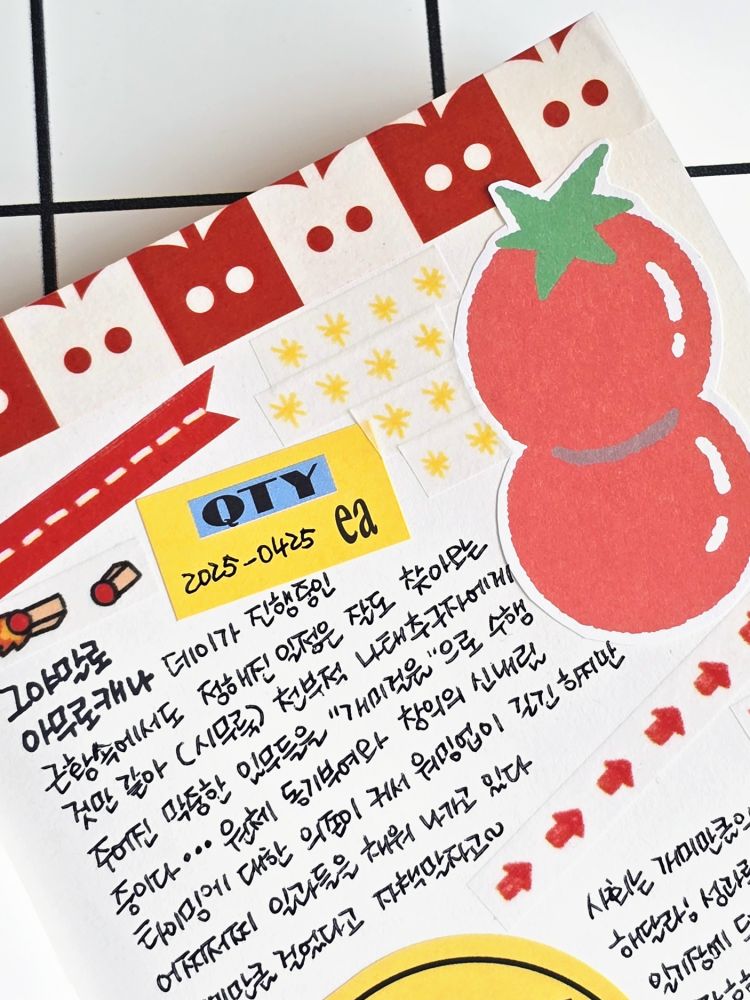 QTY
2025-0425 ea
그야말로
아무로캐나 데이가 진행중인
근황속에서도 정해진 일정은 잘도 찾아오는
것만 같아 (시무룩) 천부적 나태추구자에게
주어진 막중한 임무들을 "개미걸음"으로 수행
중이다... 원체 동기부여와 창의의 신내림
타이밍에 대한 의존이 커서 워밍업이 길긴 하지만
어찌저찌 일과들을 채워 나가고 있다
개미만큼 걸었다고 자책말자고~
사회는 개미만큼의
해달라, 성과를
일기장에